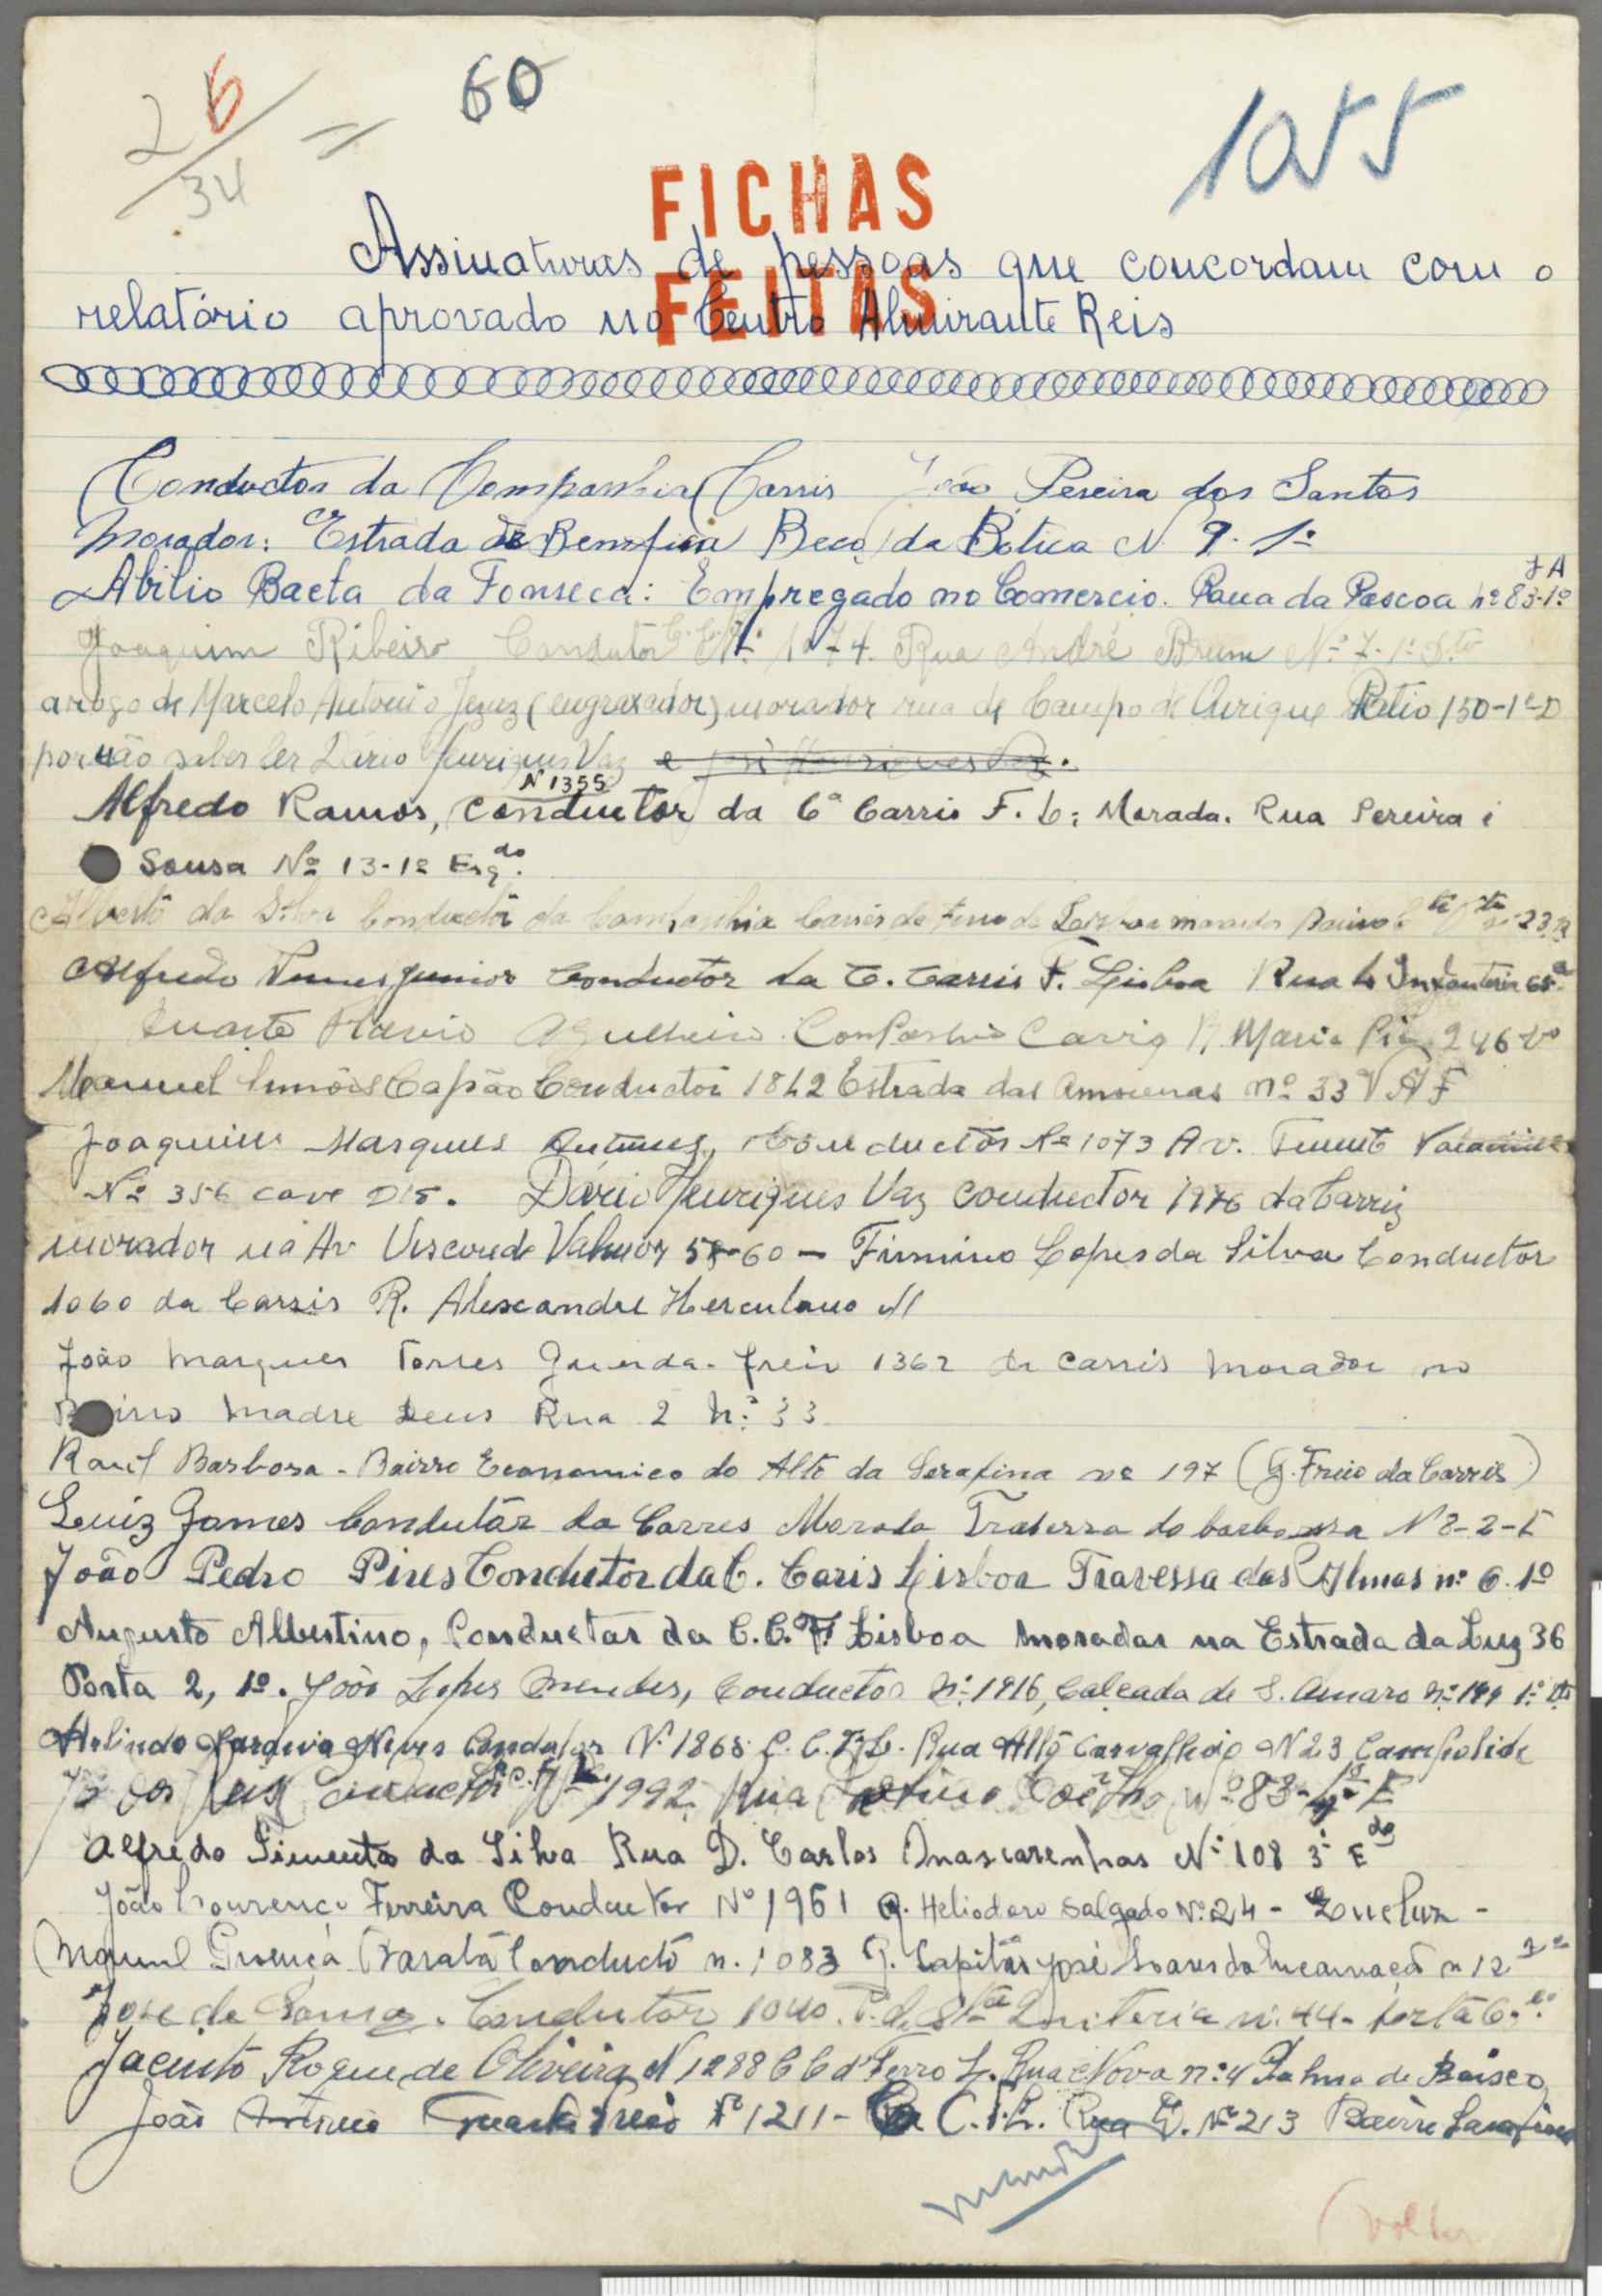 26/34 = 60
1055
FICHAS
FEITAS
Assinaturas de pessoas que concordam com o
relatório aprovado no Centro Almirante Reis
Conductor da Companhia Carris João Pereira dos Santos
Morador: Estrada de Bemfica Beco da Botica N 9. 1º
Abilio Baeta da Fonseca: Empregado no Comercio. Paua da Pascoa nº 83-1º
J A
Joaquim Ribeiro Condutor Nº 1074. Rua André Brum Nº 7. 1º Dto
a rogo de Marcelo Antonio Jezuz (engraxador) morador rua de Campo de Ourique Patio 150-1º D
por não saber ler Dário Henriques Vaz
Alfredo Ramos, conductor Nº 1355 da Cª Carris F. L; Morada. Rua Pereira i
Sousa Nº 13-1º Esqdo.
Alberto da Silva Conductor da Companhia Carris de Ferro de Lisboa morador Bairro
Alfredo Nunes Junior Conductor da C. Carris F. Lisboa Rua 4 Infantaria 65
Duarte Flavio Agulheiro Companhia Carris R. Maria Pia 246
Manuel Simões Capão Conductor 1842 Estrada das Amoreiras nº 33 V A F
Joaquim Marques Antunes, Conductor Nº 1073 Av. Tenente Valadim
Nº 356 cave Dto. Dário Henriques Vaz conductor 1976 da Carris
morador na Av Visconde Valmor 58-60 – Firmino Lopes da Silva Conductor
1060 da Carris R. Alexandre Herculano 11
João Marques Torres Guarda-freio 1362 da Carris morador no
Bairro Madre Deus Rua 2 N.º 33
Raul Barbosa - Bairro Economico do Alto da Serafina nº 197 (G. Freio da Carris)
Luiz Gomes Condutôr da Carres Morada Traversa do barbosa N 2-2-E
João Pedro Pires Condutor da C. Caris Lisboa Travessa das Almas nº 6. 1º
Augusto Albertino, Conductor da C.C.F. Lisboa morador na Estrada da Luz 36
Porta 2, 1º. João Lopes Mendes, Conductor Nº 1916, Calçada de S. Amaro Nº 144 1º Dto
Neves Condutor Nº 1868 C. C. F. L. Rua Altº Carvalhão N 23 Campolide
Conductor 1992 Rua Latino Coelho Nº 83-4º E
Alfredo Pimenta da Silva Rua D. Carlos Mascarenhas Nº 108 3º Edo
João Lourenço Ferreira Conductor Nº 1961 R. Heliodoro Salgado Nº 24 - Queluz -
Manuel Proença Barata Conductô n. 1083 R. Capitão José Soares da Incarnação n 12 1º
José de Sousa. Condutor 1040. T. de Sta Quiteria nº 44 - porta 6.
Jacinto Roque de Oliveira N 1288 C C d Ferro L. Rua Nova nº 4 Palma de Baixo
João Antonio Guarda Freio Nº 1211 - C. F. L. Rua G. Nº 213 Bairro Serafina
(voltar